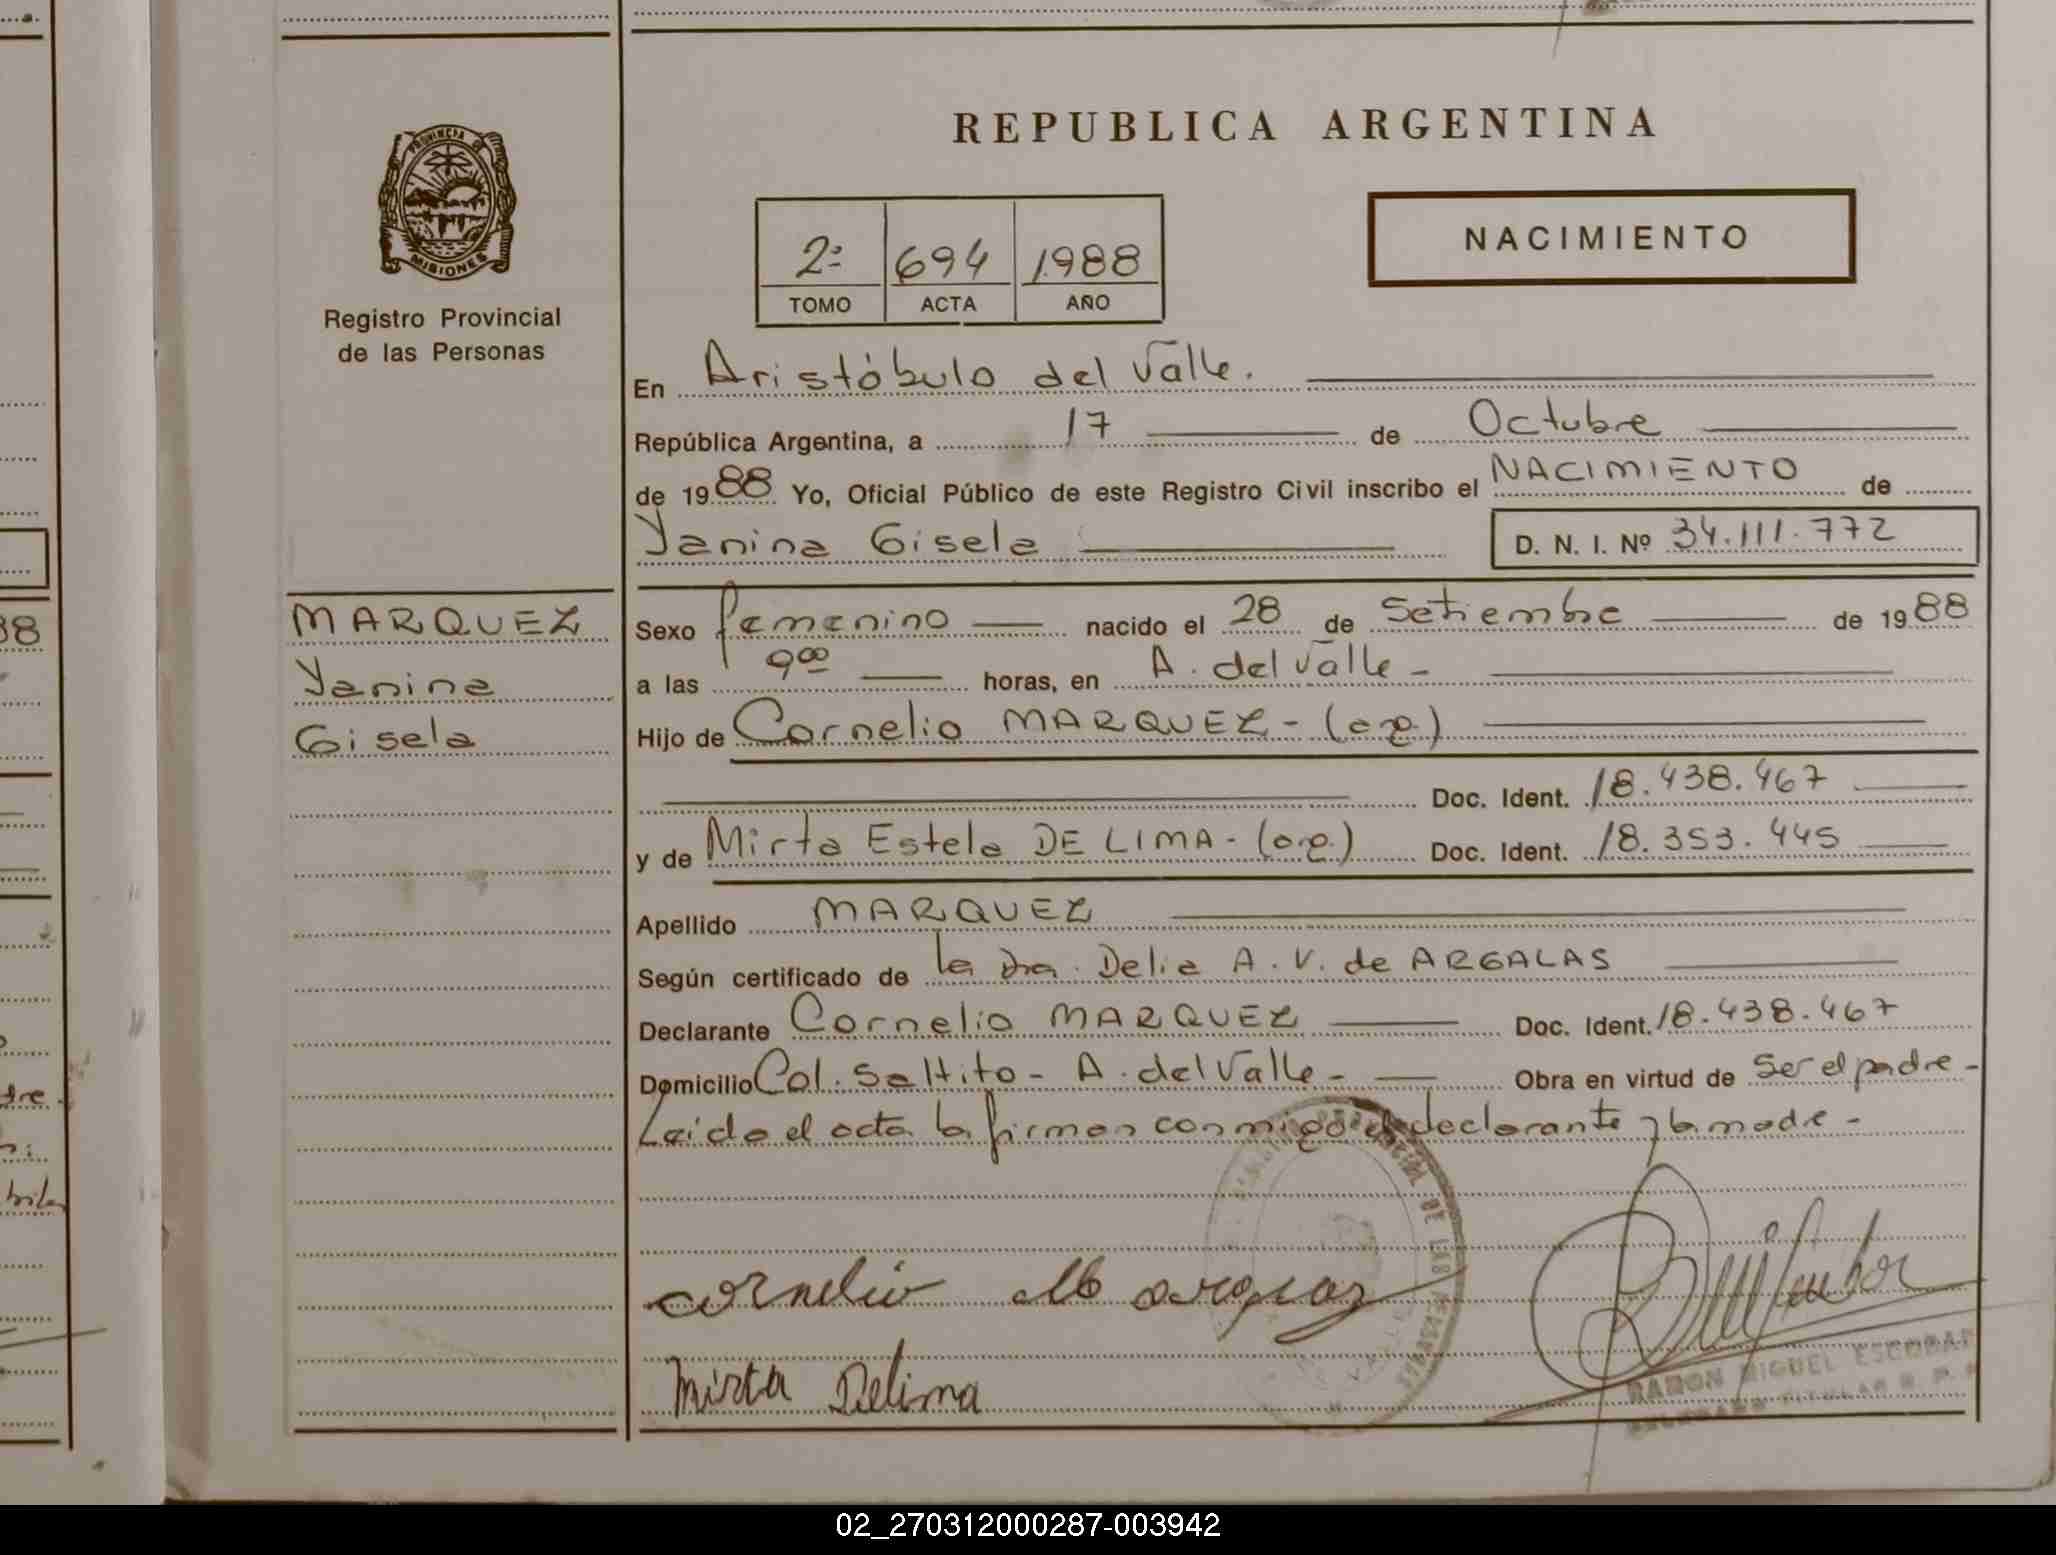 PROVINCIA DE
MISIONES
Registro Provincial
de las Personas
MARQUEZ
Yanina
Gisela
REPUBLICA ARGENTINA
2º 694 1988
TOMO ACTA AÑO
NACIMIENTO
En Aristóbulo del Valle.
República Argentina, a 17 de Octubre
de 1988 Yo, Oficial Público de este Registro Civil inscribo el NACIMIENTO de
Yanina Gisela D. N. I. Nº 34.111.772
Sexo femenino nacido el 28 de Setiembre de 1988
a las 9 00 horas, en A. del Valle -
Hijo de Cornelio MARQUEZ - (arg.)
Doc. Ident. 18.438.467
y de Mirta Estela DE LIMA - (arg.) Doc. Ident. 18.353.445
Apellido MARQUEZ
Según certificado de la Dra. Delia A. V. de ARGALAS
Declarante Cornelio MARQUEZ Doc. Ident. 18.438.467
Domicilio Col. Saltito - A. del Valle - Obra en virtud de Ser el padre -
Leída el acta la firman conmigo el declarante y la madre -
cornelio Marquez
Mirta Delima
RAMON MIGUEL ESCOBAR
DELEGADO TITULAR R. P. P.
02_270312000287-003942